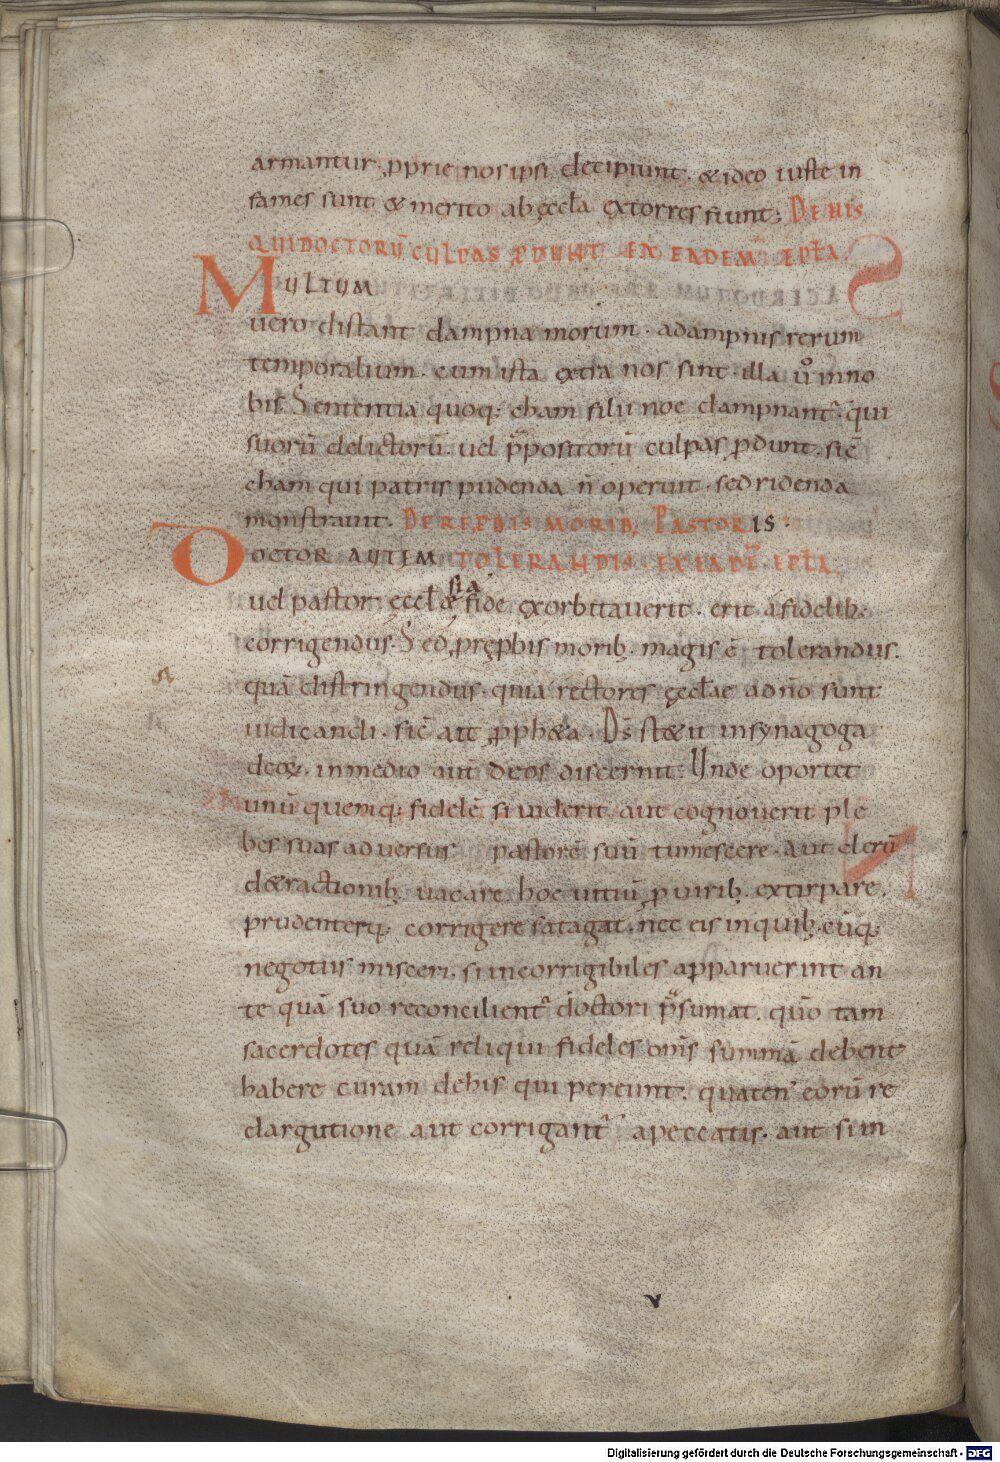 armantur, ꝓprie nos ipsi decipiunt. & ideo iuste in
fames sunt & merito ab ęccła extorres fiunt; DE HIS
QUI DOCTORŪ CULPAS ꝐDUNT EX EADEM EPŁA.
MULTUM
vero distant dampna morum. a dampnis rerum
temporalium. cum ista extra nos sint. illa ů in no
bis. Sententia quoq; cham filii noe dampnant᷑. qui
suorū delictorū. uel p̄positorū culpas ꝓdunt. sic̄
cham qui patris pudenda n̄ operuit. sed ridenda
monstrauit. DE REꝒBIS MORIB; PASTORIS.
DOCTOR AUTEM TOLERANDIS EX EADĒ EPŁA.
uel pastor ęccłae
sia
fide exorbitauerit. erit a fidelib;
corrigendus. Sed ꝓ reꝓbis morib; magis ē tolerandus.
quā distringendus. quia rectores ęccłae a dn̄o sunt
iudicandi. sic̄ ait ꝓph&a. Ds̄ st&it in synagoga
deoꝝ. in medio aut̄ deos discernit; Unde oportet
unū quemq; fidelē si uiderit aut cognouerit ple
bes suas aduersus pastorē suū tumescere. aut clerū
d&ractionib; uacare. hoc uitiū ꝓ uirib; extirpare.
prudenterq; corrigere satagat. nec eis in quib;cūq;
negotiis misceri. si incorrigibiles apparuerint an
te quā suo reconcilient᷑ doctori p̄sumat. quō tam
sacerdotes quā reliqui fideles om̄s summā debent
habere curam de his qui pereunt. quaten᷒ eorū re
dargutione aut corrigant᷑ a peccatis. aut si in
Digitalisierung gefördert durch die Deutsche Forschungsgemeinschaft - DFG